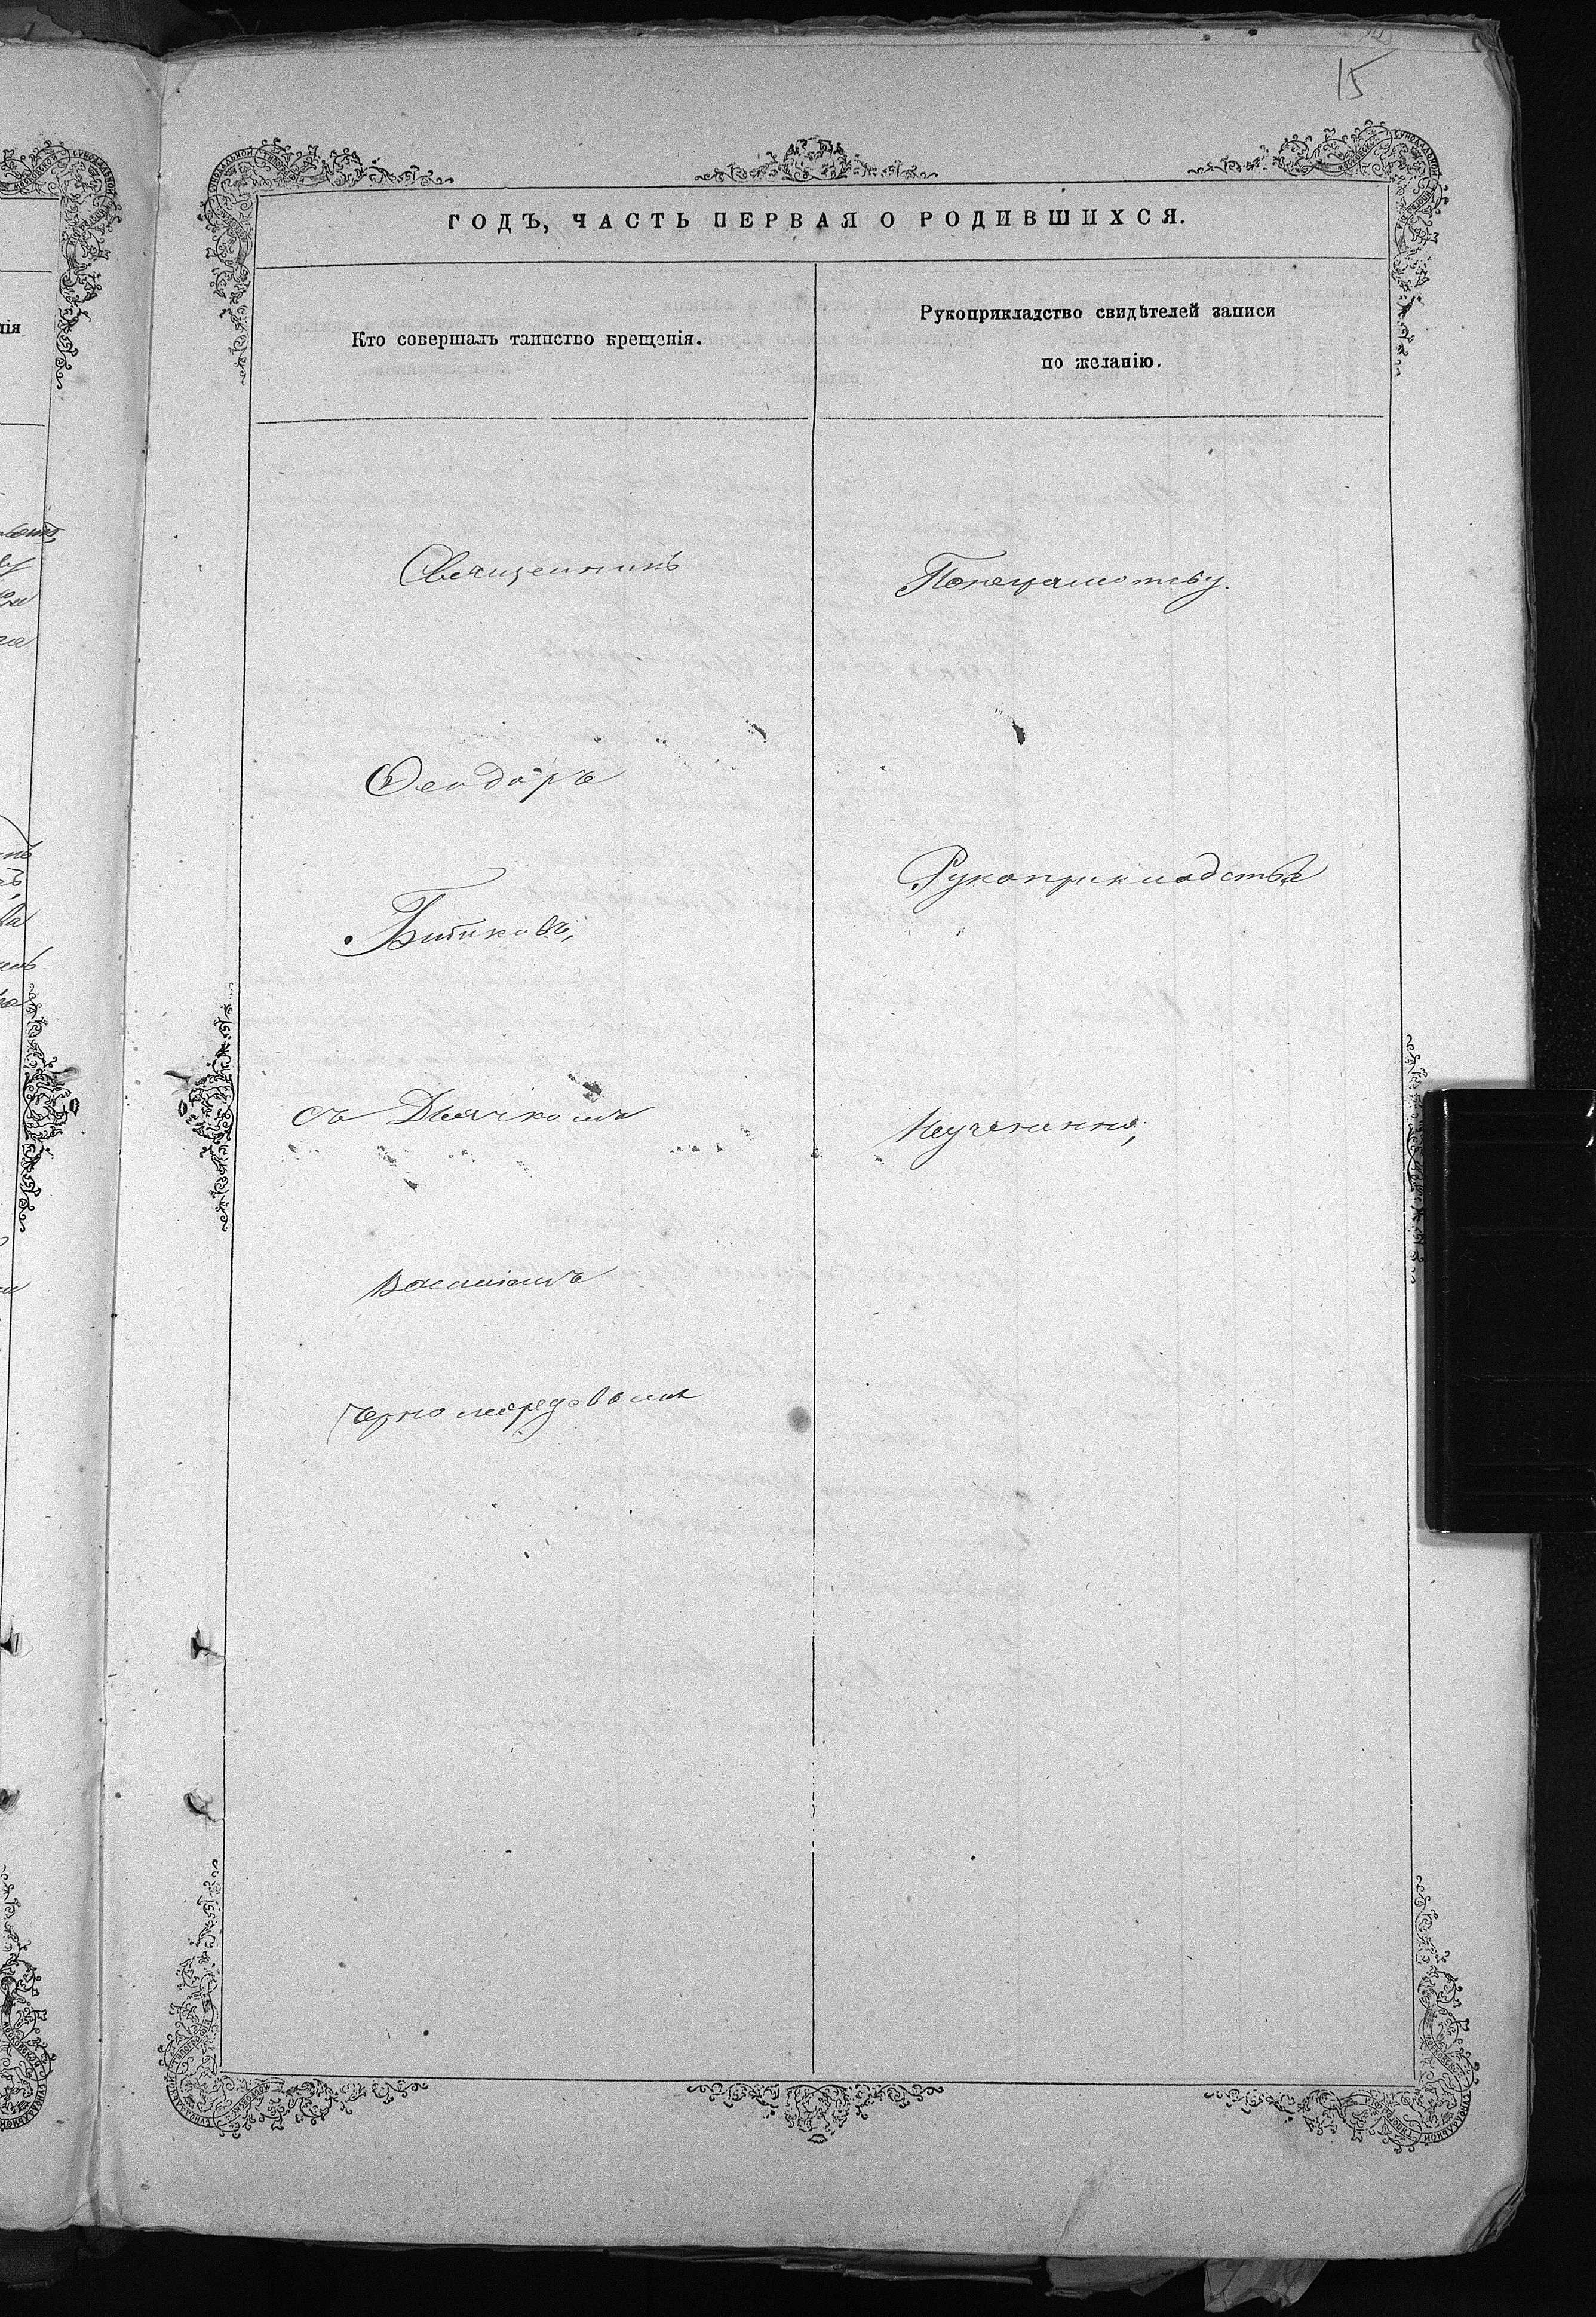 15
ГОДЪ, ЧАСТЬ ПЕРВАЯ О РОДИВШИХСЯ.
Кто совершалъ таинство крещенія.
Рукоприкладство свидѣтелей записи
по желанію.
Священникъ
Ѳеодоръ
Битиковъ,
съ Дьячкомъ
Василіемъ
Понеграмотству.
Рукоприкладства
Неучинино,